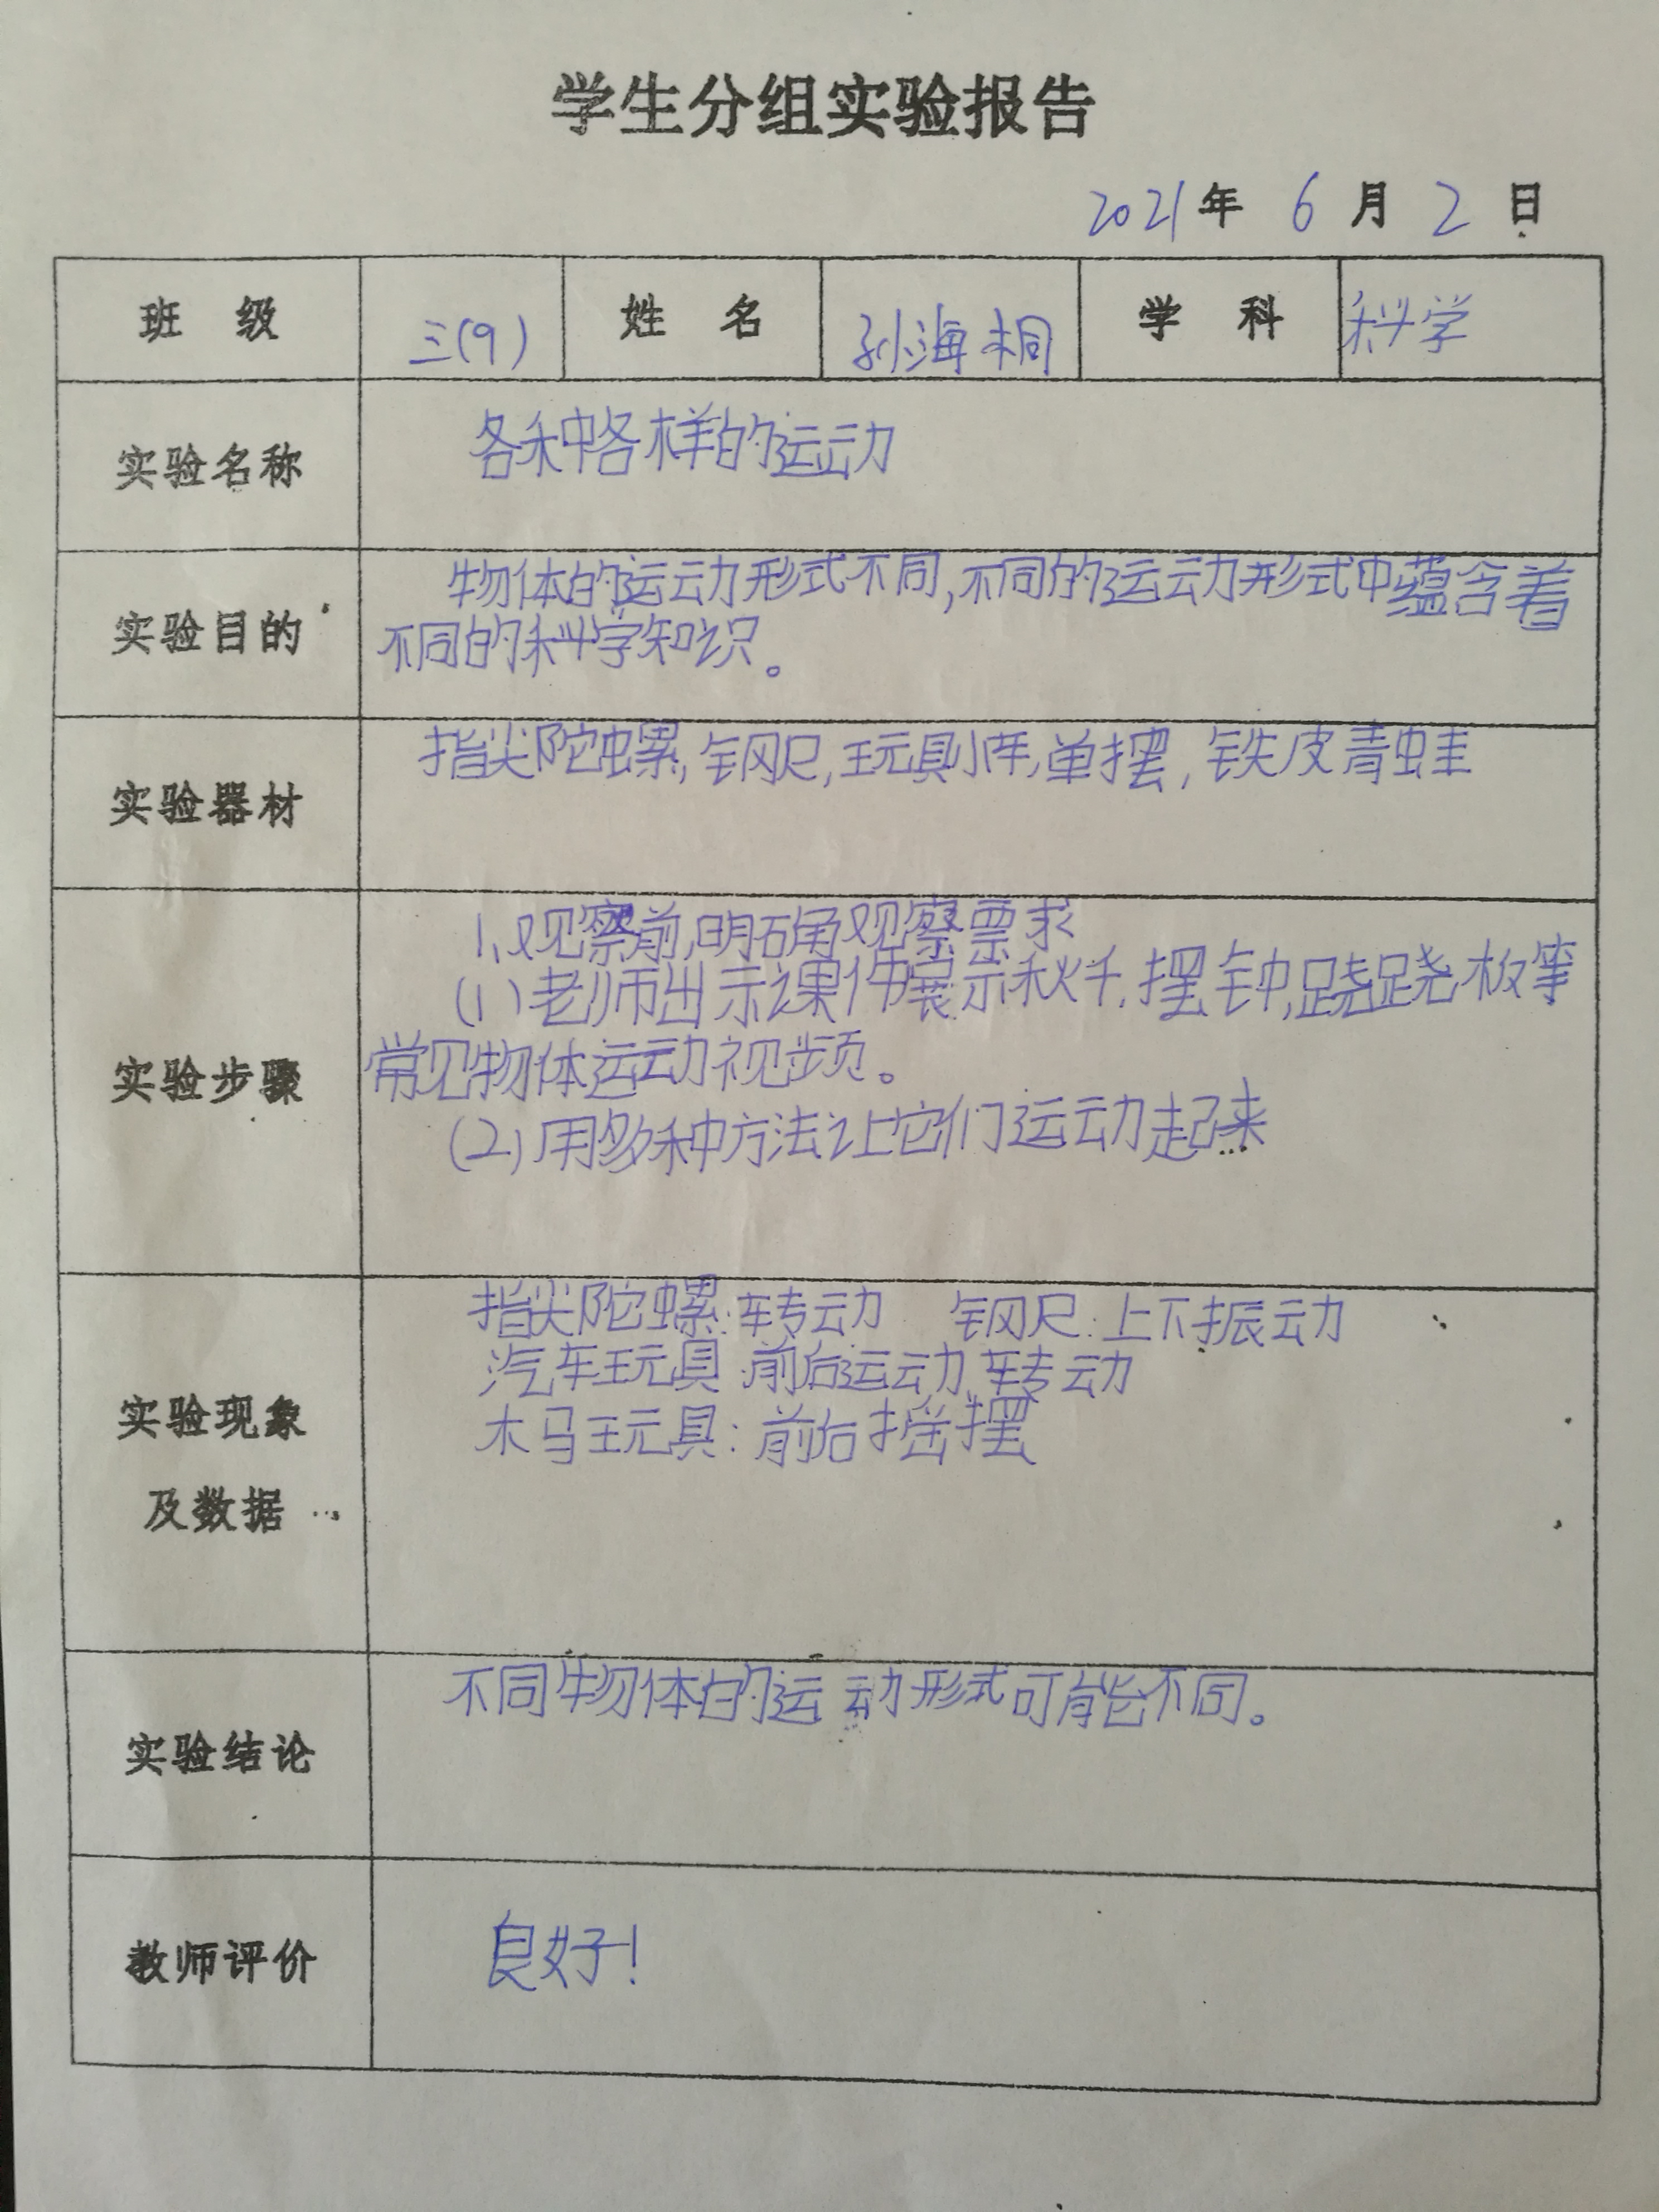 学生分组实验报告
2021年 6月2日
班 级 三(9) 姓 名 孙海桐 学 科 科学
实验名称 各种各样的运动
实验目的 物体的运动形式不同,不同的运动形式中蕴含着
不同的科学知识。
实验器材 指尖陀螺,钢尺,玩具小车,单摆,铁皮青蛙
实验步骤 1、观察前,明确观察票求
(1)老师出示课件展示秋千,摆钟,跷跷板等
常见物体运动视步页。
(2)用多种方法让它们运动起来
实验现象
及数据
指尖陀螺:转动 钢尺:上下振动
汽车玩具:前后运动,转动
木马玩具:前后摇摆
实验结论 不同物体的运动形式可能不同。
教师评价 良好!